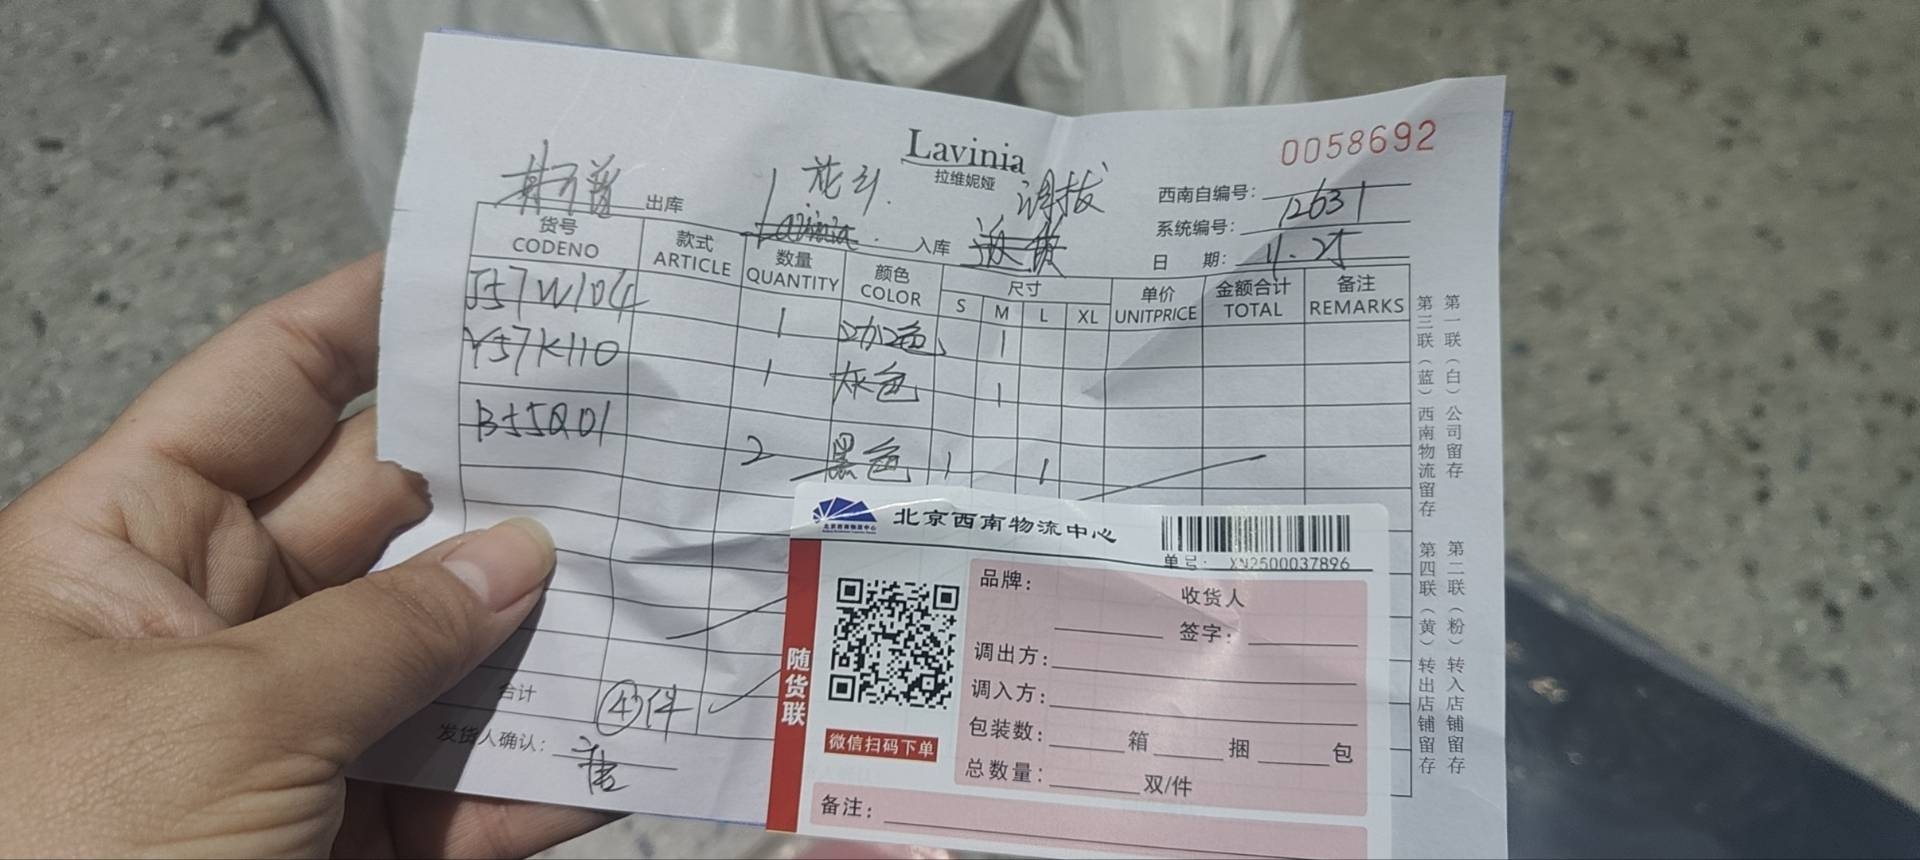 Lavinia
拉维妮娅
0058692
出库
入库
调拔
西南自编号：
系统编号：12631
日 期：4.25
货号 CODENO
款式 ARTICLE
数量 QUANTITY
颜色 COLOR
尺寸
S M L XL
单价 UNITPRICE
金额合计 TOTAL
备注 REMARKS
J57W104 1 咖色 1
Y57K110 1 灰色 1
B55Q01 2 黑色 1 1
合计 ④件
发货人确认：
第一联（白）公司留存
第二联（粉）转入店铺留存
第三联（蓝）西南物流留存
第四联（黄）转出店铺留存
北京西南物流中心
单号： XN2500037896
随货联
微信扫码下单
品牌：
收货人
签字：
调出方：
调入方：
包装数： 箱 捆 包
总数量： 双/件
备注：